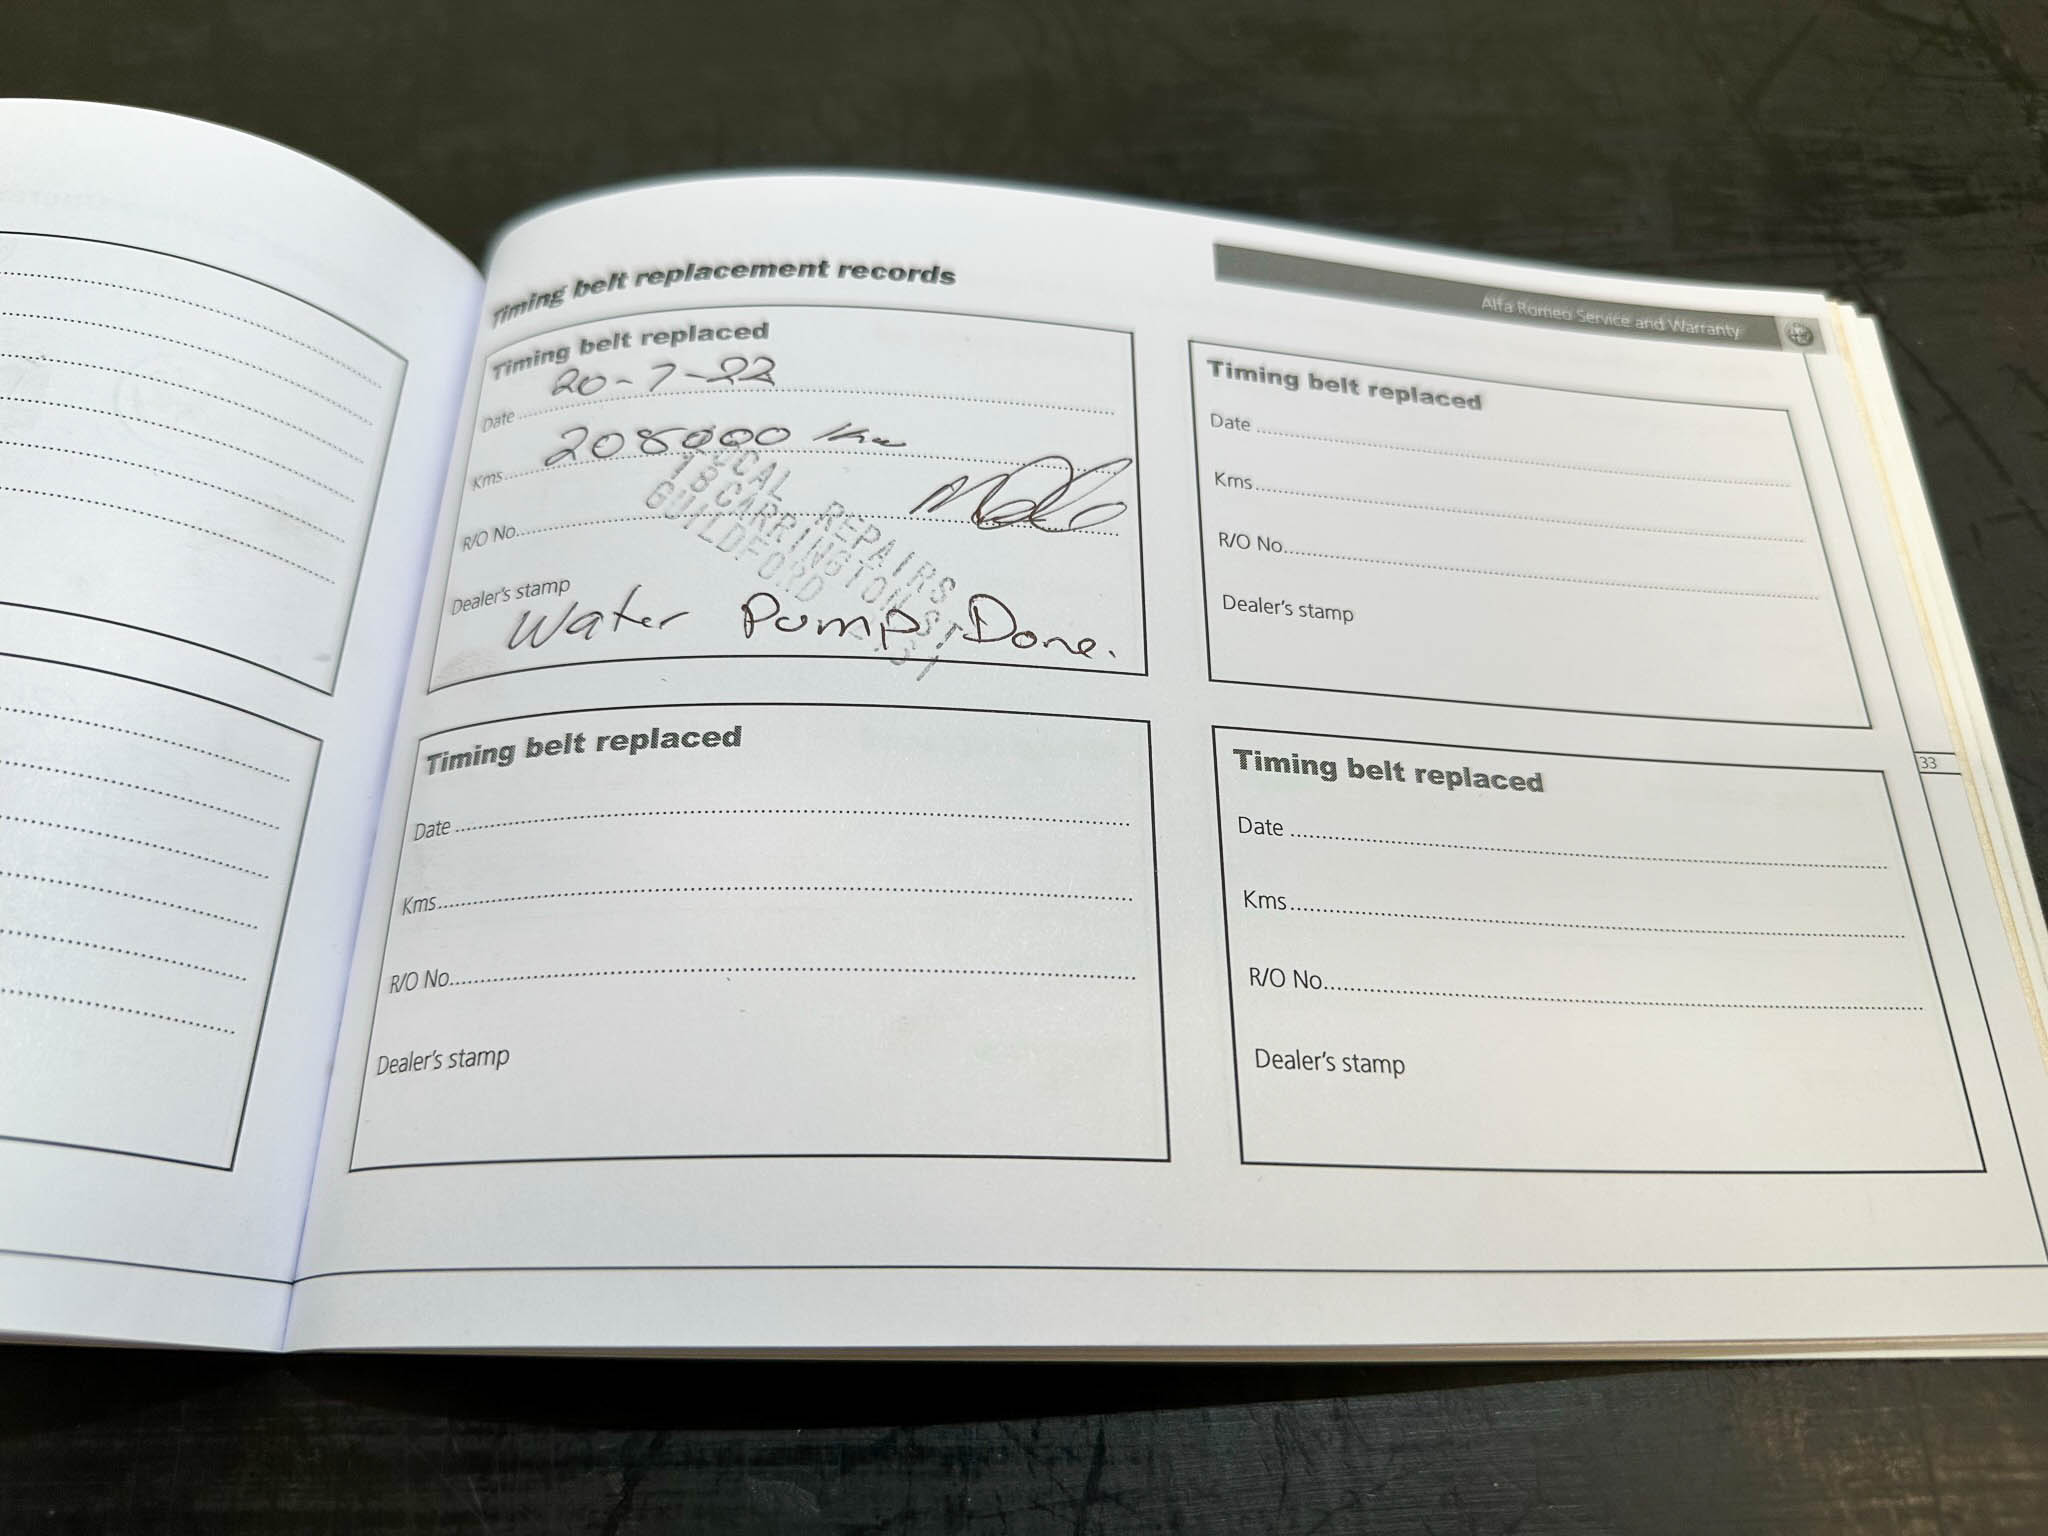 Timing belt replacement records
Alfa Romeo Service and Warranty
Timing belt replaced
Date 20-7-22
Kms 208000 km
R/O No.
Dealer's stamp
REPAIRS
18 CARRINGTON ST
GUILDFORD
Water Pump Done.
Timing belt replaced
Date
Kms
R/O No.
Dealer's stamp
Timing belt replaced
Date
Kms
R/O No.
Dealer's stamp
Timing belt replaced
Date
Kms
R/O No.
Dealer's stamp
33